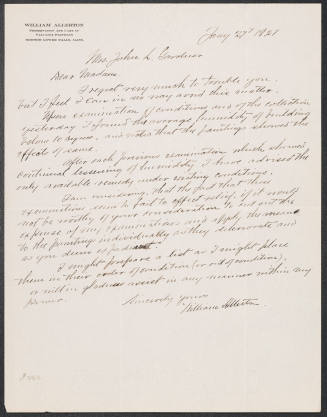 WILLIAM ALLERTON
PRESERVATION AND CARE OF
VALUABLE PAINTINGS
NEWTON LOWER FALLS, MASS.
Jany 27" 1921
Mrs. John L. Gardner
Dear Madam
I regret very much to trouble you,
but I feel I can in no way avoid this matter.
Upon examination of conditions and of the collection
yesterday I found the average humidity of building
below 40 degrees, and notes that the paintings showed the
effects of same.
After each previous examination which showed
continual lessening of humidity I have advised the
only available remedy under existing conditions.
I am wondering, that the fact that these
examinations seem to fail to affect relief, if it would
not be worthy of your consideration to cut out the
expense of my examinations and apply the means
to the paintings individually as they deteriorate and
as you deem expedient.
I might prepare a list as I might place
them in their order of condition (or out of condition),
or will in gladness assist in any manner within my
power.
Sincerely yours
William Allerton